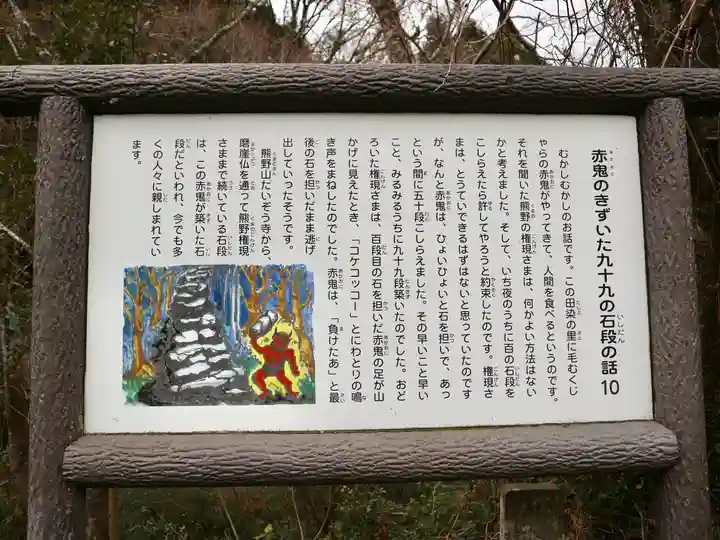 赤鬼のきずいた九十九の石段の話 10
むかしむかしのお話です。この田染の里に毛むくじ
やらの赤鬼がやってきて、人間を食べるというのです。
それを聞いた熊野の権現さまは、何かよい方法はない
かと考えました。そして、いち夜のうちに百の石段を
こしらえたら許してやろうと約束したのです。権現さ
まは、とうていできるはずはないと思っていたのです
が、なんと赤鬼は、ひょいひょいと石を担いで、あっ
という間に五十段こしらえました。その早いこと早い
こと、みるみるうちに九十九段築いたのでした。おど
ろいた権現さまは、百段目の石を担いだ赤鬼の足が山
かげに見えたとき、「コケコッコー」とにわとりの鳴
き声をまねしたのでした。赤鬼は、「負けたあ」と最
後の石を担いだまま逃げ
出していったそうです。
熊野山たいぞう寺から、
磨崖仏を通って熊野権現
さままで続いている石段
は、この赤鬼が築いた石
段だといわれ、今でも多
くの人々に親しまれてい
ます。